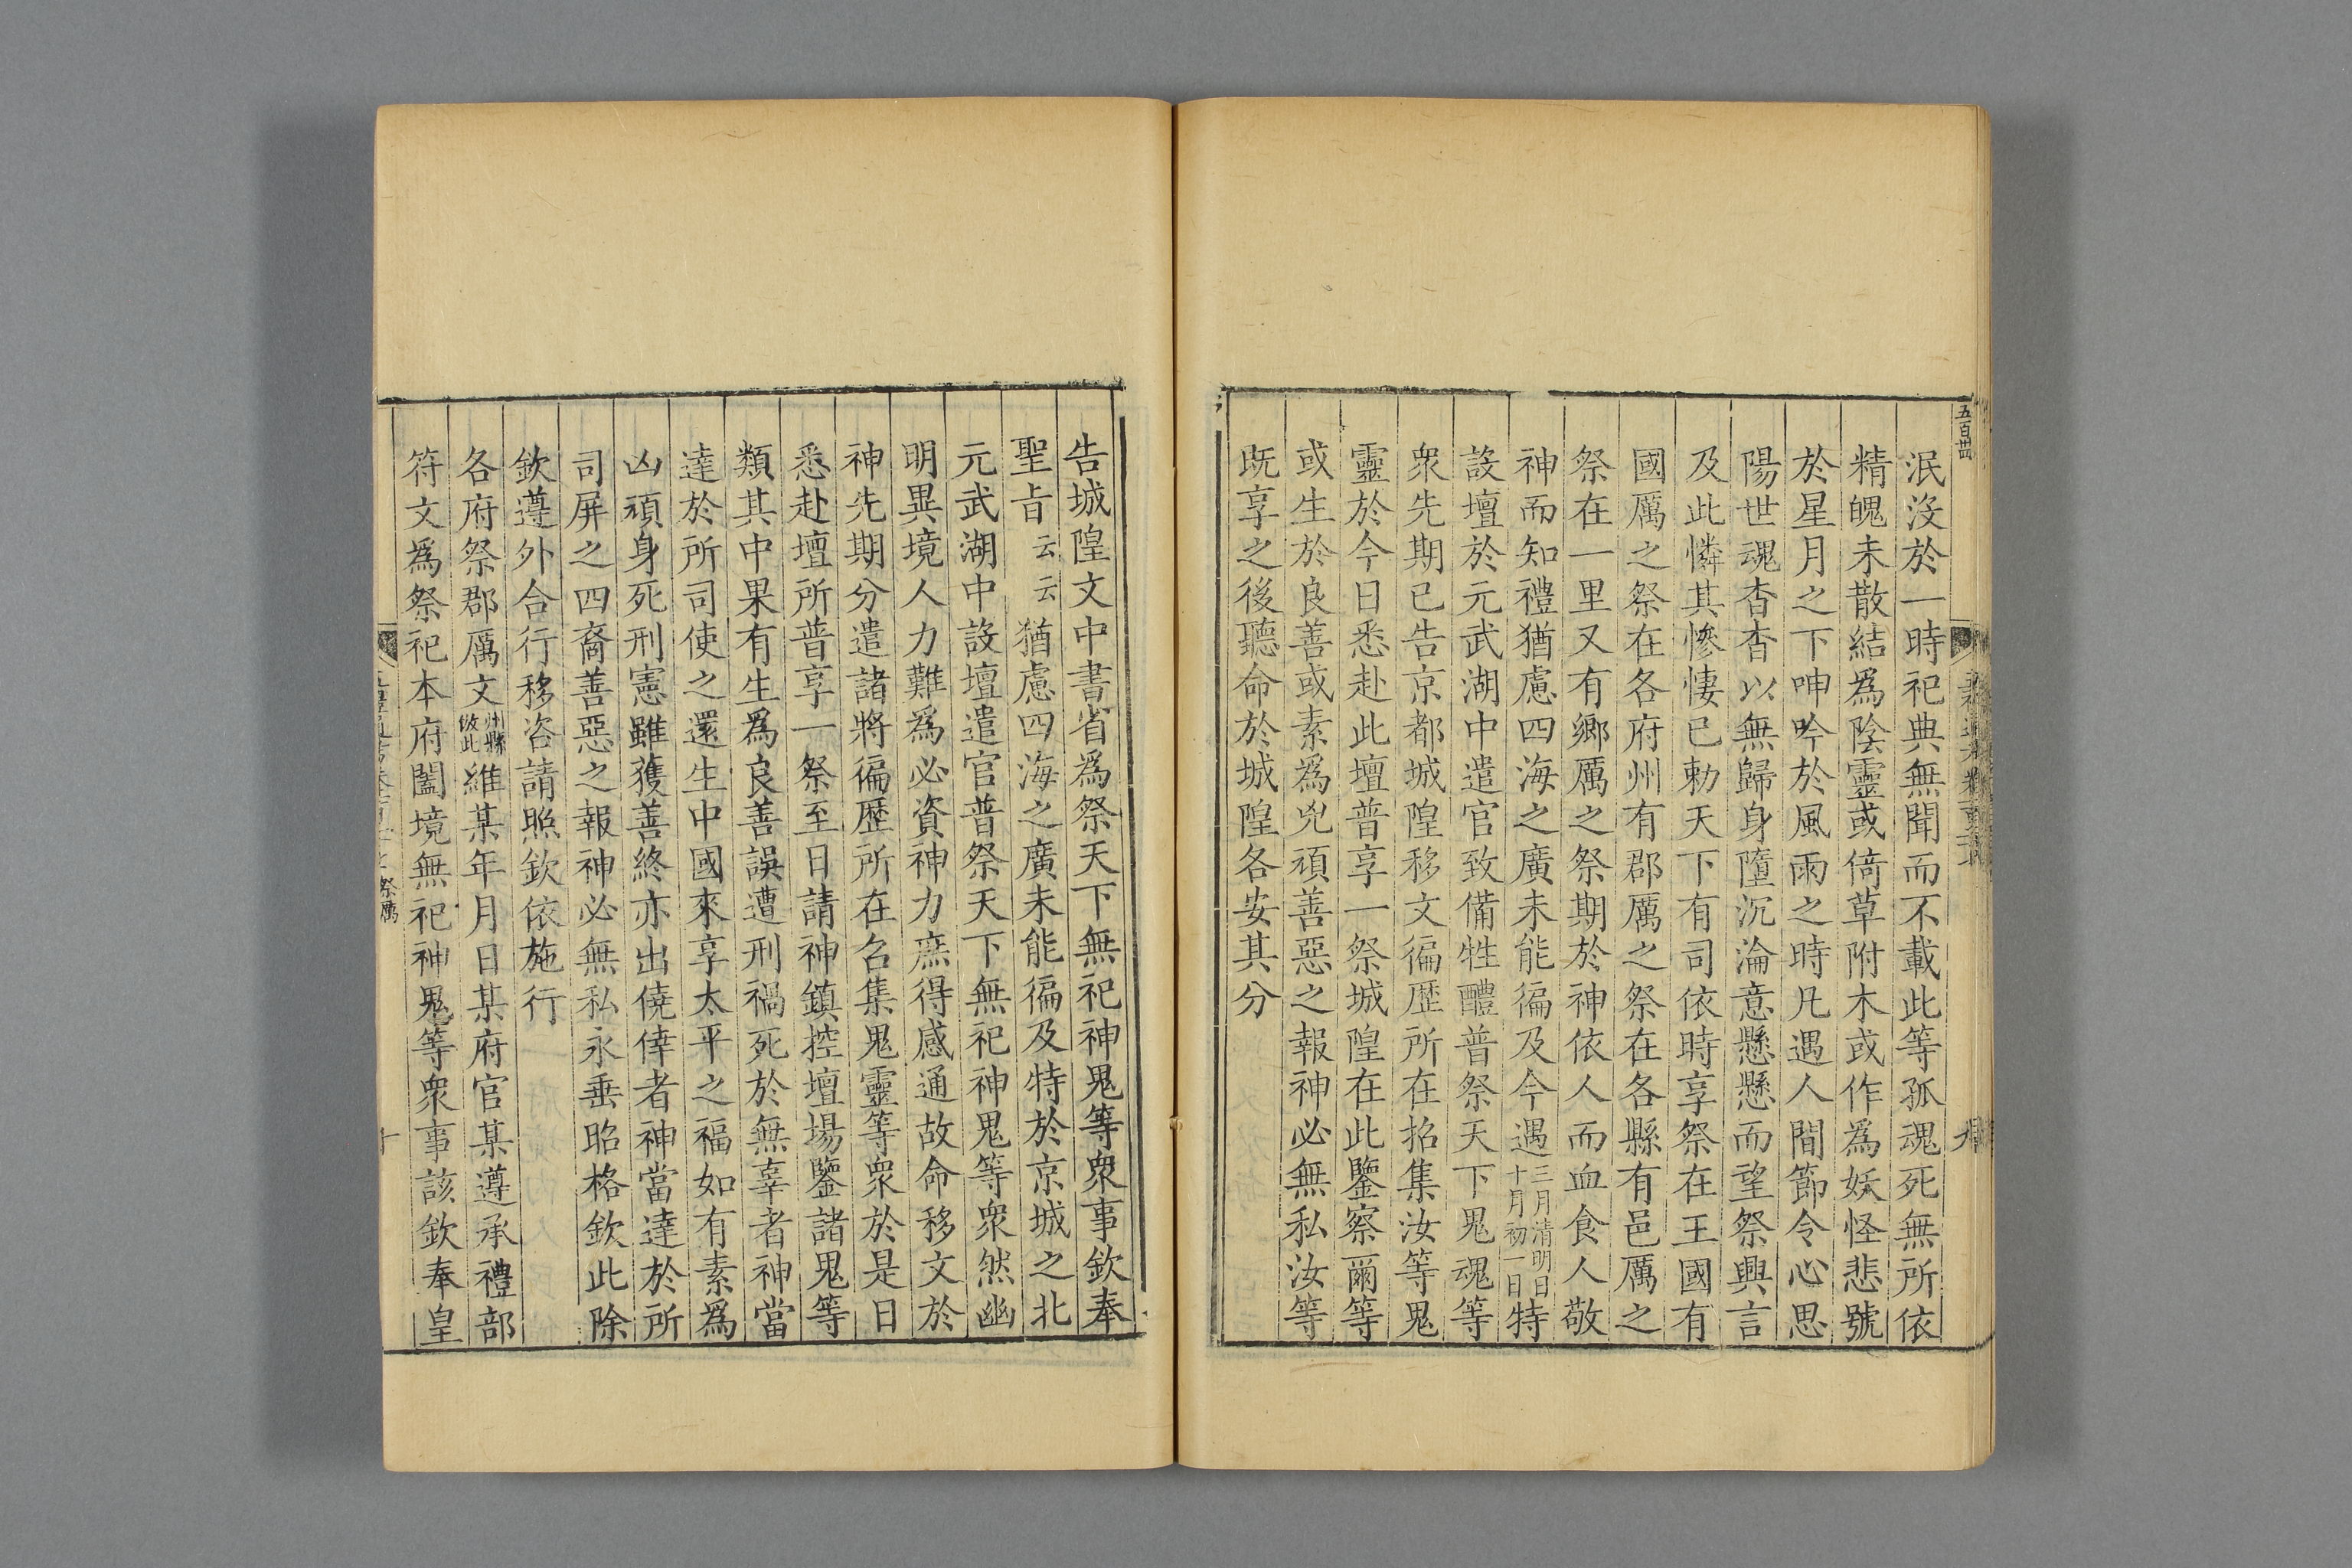 五百卌
泯沒於一時祀典無聞而不載此等孤魂死無所依
精魄未散結爲陰靈或倚草附木或作爲妖怪悲號
於星月之下呻吟於風雨之時凡遇人間節令心思
陽世魂杳杳以無歸身墮沉淪意懸懸而望祭興言
及此憐其慘悽已勅天下有司依時享祭在王國有
國厲之祭在各府州有郡厲之祭在各縣有邑厲之
祭在一里又有鄉厲之祭期於神依人而血食人敬
神而知禮猶慮四海之廣未能徧及今遇三月清明日十月初一日特
設壇於元武湖中遣官致備牲醴普祭天下鬼魂等
衆先期已告京都城隍移文徧歷所在招集汝等鬼
靈於今日悉赴此壇普享一祭城隍在此鑒察爾等
或生於良善或素爲兇頑善惡之報神必無私汝等
既享之後聽命於城隍各安其分
告城隍文中書省爲祭天下無祀神鬼等衆事欽奉
聖旨云云猶慮四海之廣未能徧及特於京城之北
元武湖中設壇遣官普祭天下無祀神鬼等衆然幽
明異境人力難爲必資神力庶得感通故命移文於
神先期分遣諸將徧歷所在召集鬼靈等衆於是日
悉赴壇所普享一祭至日請神鎮控壇場鑒諸鬼等
類其中果有生爲良善誤遭刑禍死於無辜者神當
達於所司使之還生中國來享太平之福如有素爲
凶頑身死刑憲雖獲善終亦出僥倖者神當達於所
司屏之四裔善惡之報神必無私永垂昭格欽此除
欽遵外合行移咨請照欽依施行
各府祭郡厲文州縣倣此維某年月日某府官某遵承禮部
符文爲祭祀本府闔境無祀神鬼等衆事該欽奉皇
祭厲
十